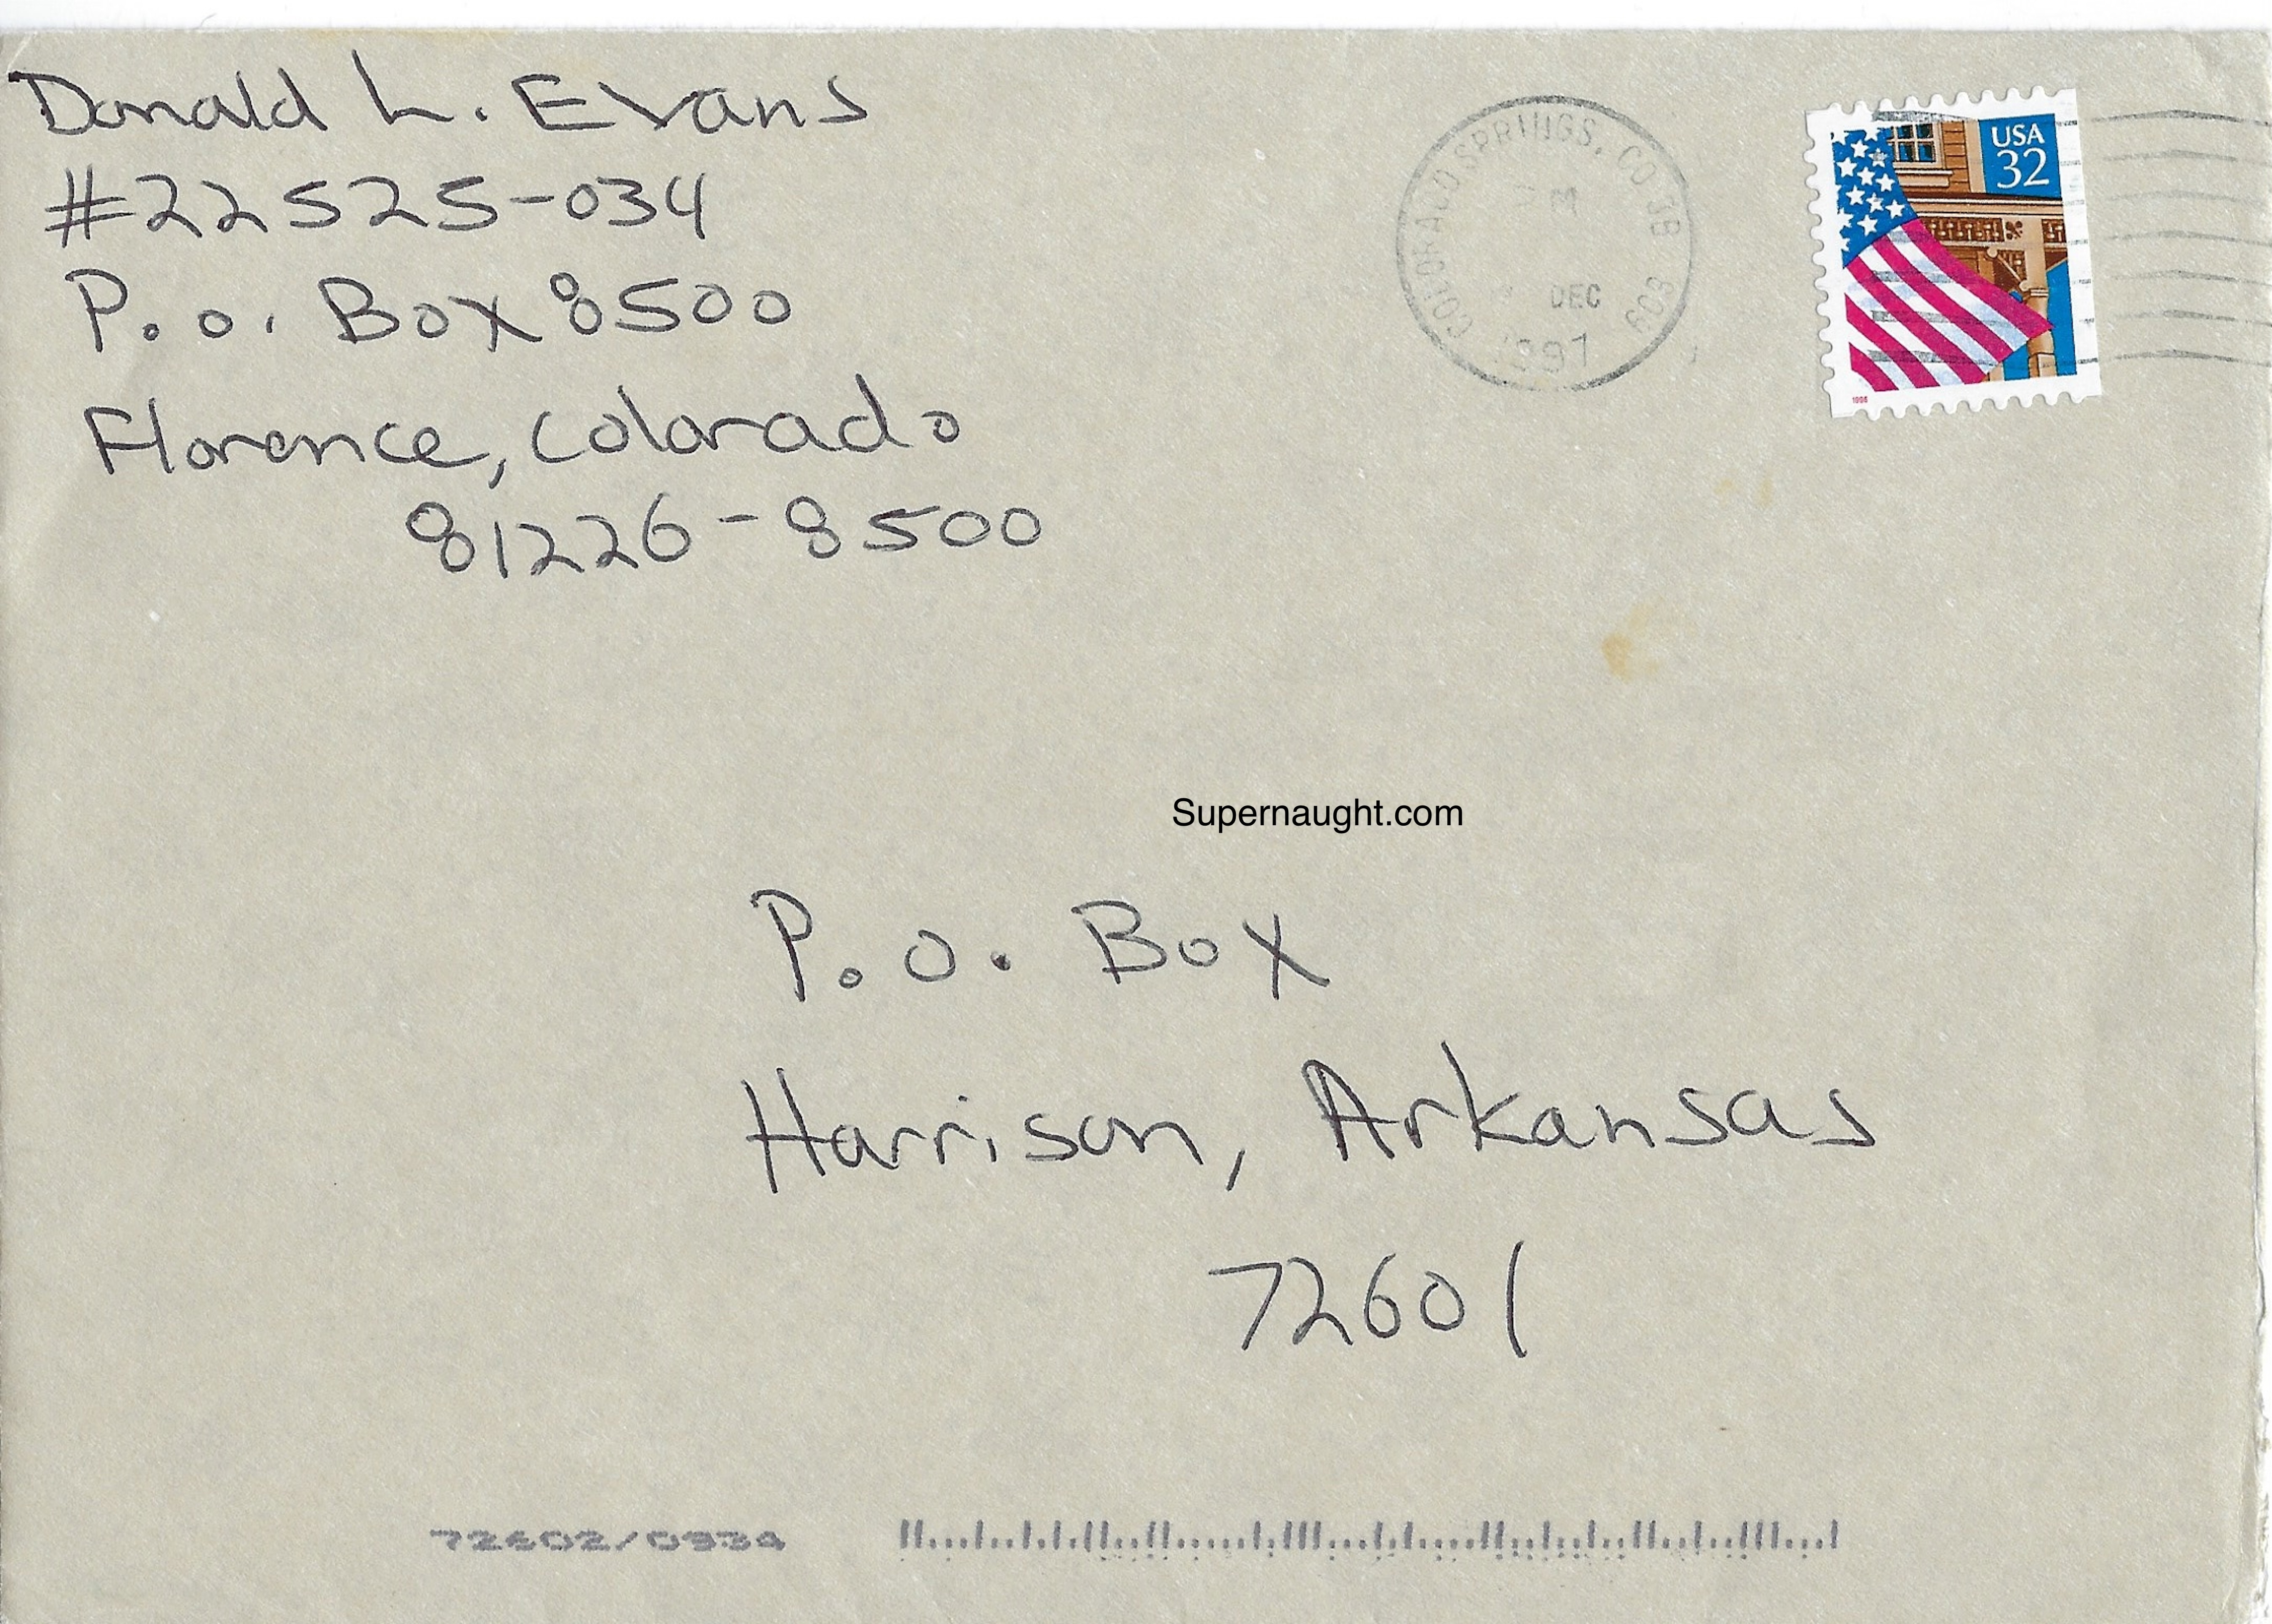 Donald L. Evans
#22525-034
P.O. Box 8500
Florence, Colorado
81226-8500
COLORADO SPRINGS, CO
809
DEC
1997
USA
32
1996
Supernaught.com
P.O. Box
Harrison, Arkansas
72601
72602/0934